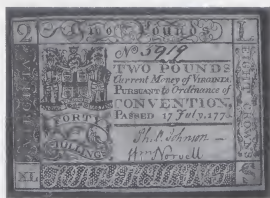 2 Two Pounds L
No 5919
TWO POUNDS
Current Money of VIRGINIA.
PURSUANT to Ordinance of
CONVENTION,
PASSED 17 July, 177
FORTY
SHILLING
EIGHT CROWNS
Ph. P. Johnson
Wm Norvell
XL